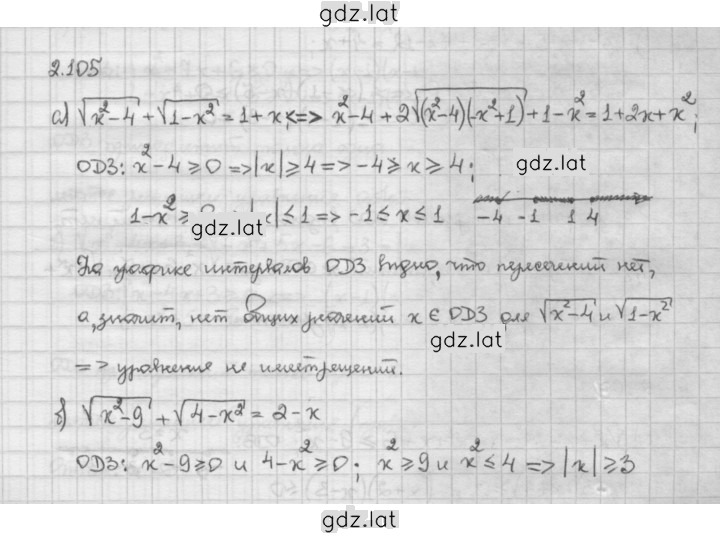 gdz.lat
2.105
а) √(x²-4) + √(1-x²) = 1+x; <=> x²-4+2√((x²-4)(-x²+1))+1-x²=1+2x+x²;
ОДЗ: x²-4≥0 =>|x|≥4=>-4≥x≥4;
gdz.lat
1-x²≥ |≤1 => -1≤x≤1 -4 -1 1 4
gdz.lat
На графике интервалов ОДЗ видно, что пересечений нет,
а, значит, нет общих значений x ∈ ОДЗ для √(x²-4) и √(1-x²)
gdz.lat
=> уравнение не имеет решений.
б) √(x²-9) + √(4-x²) = 2-x
ОДЗ: x²-9≥0 и 4-x²≥0; x²≥9 и x²≤4 => |x|≥3
gdz.lat